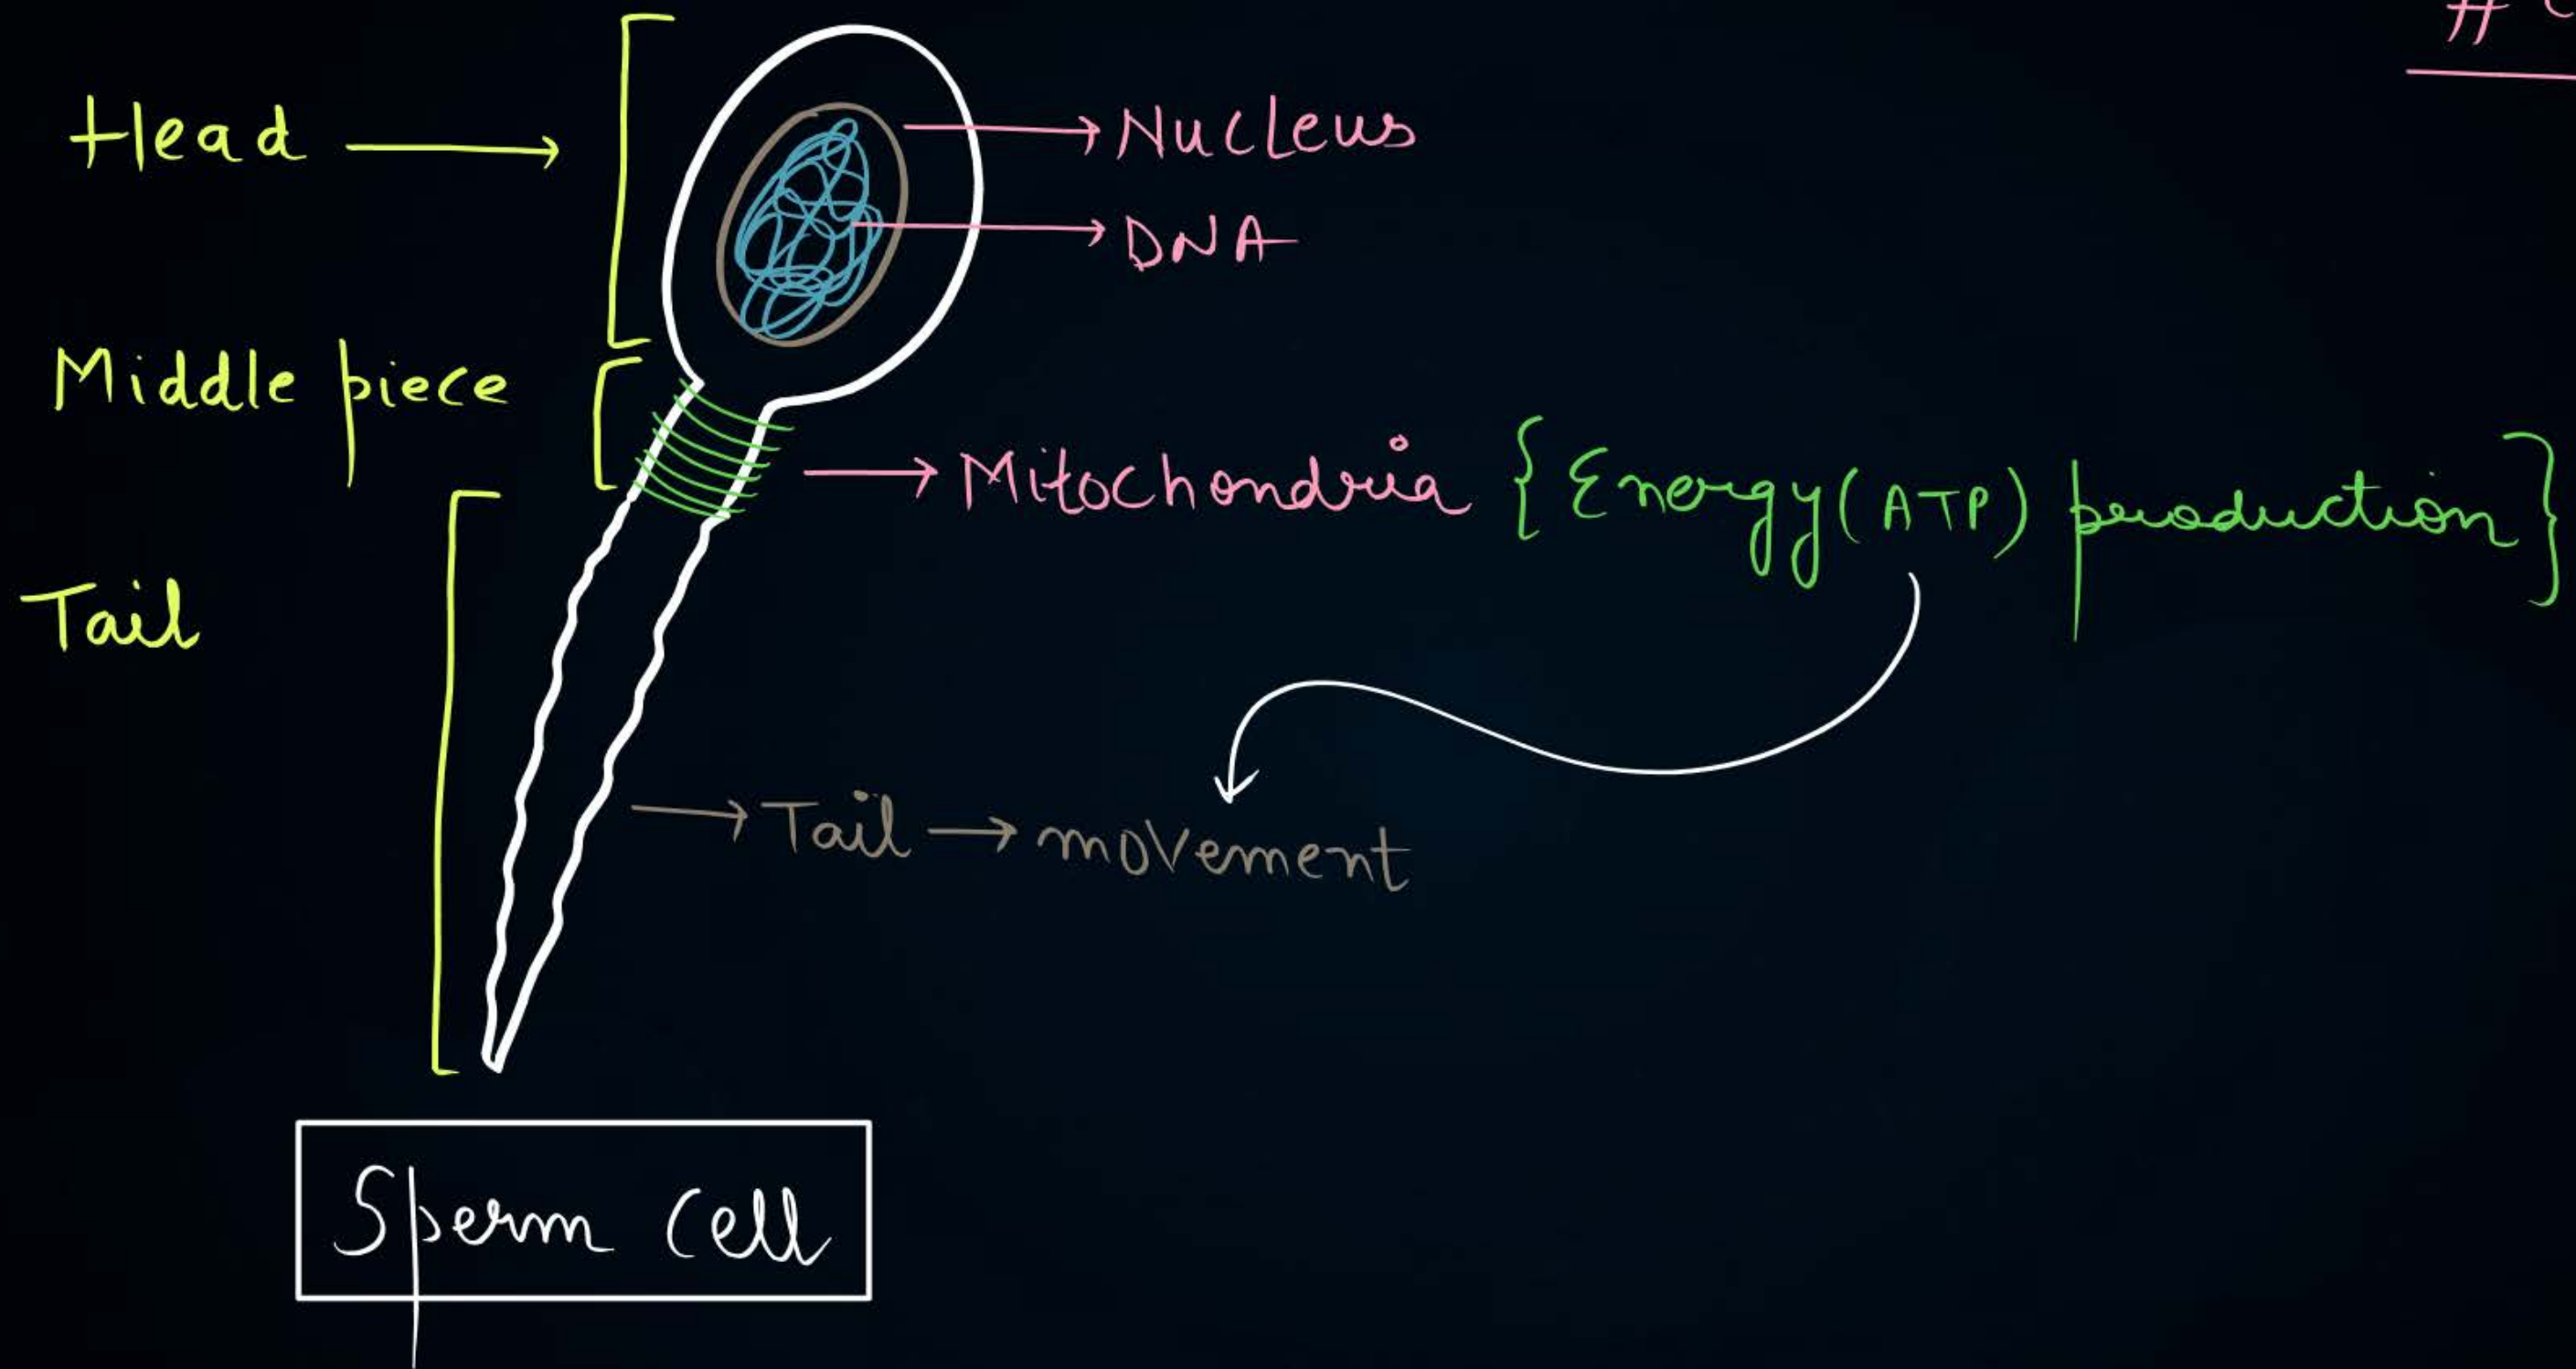 #
Head → Nucleus
→ DNA
Middle piece
→ Mitochondria {Energy(ATP) production}
Tail
→ Tail → movement
Sperm Cell